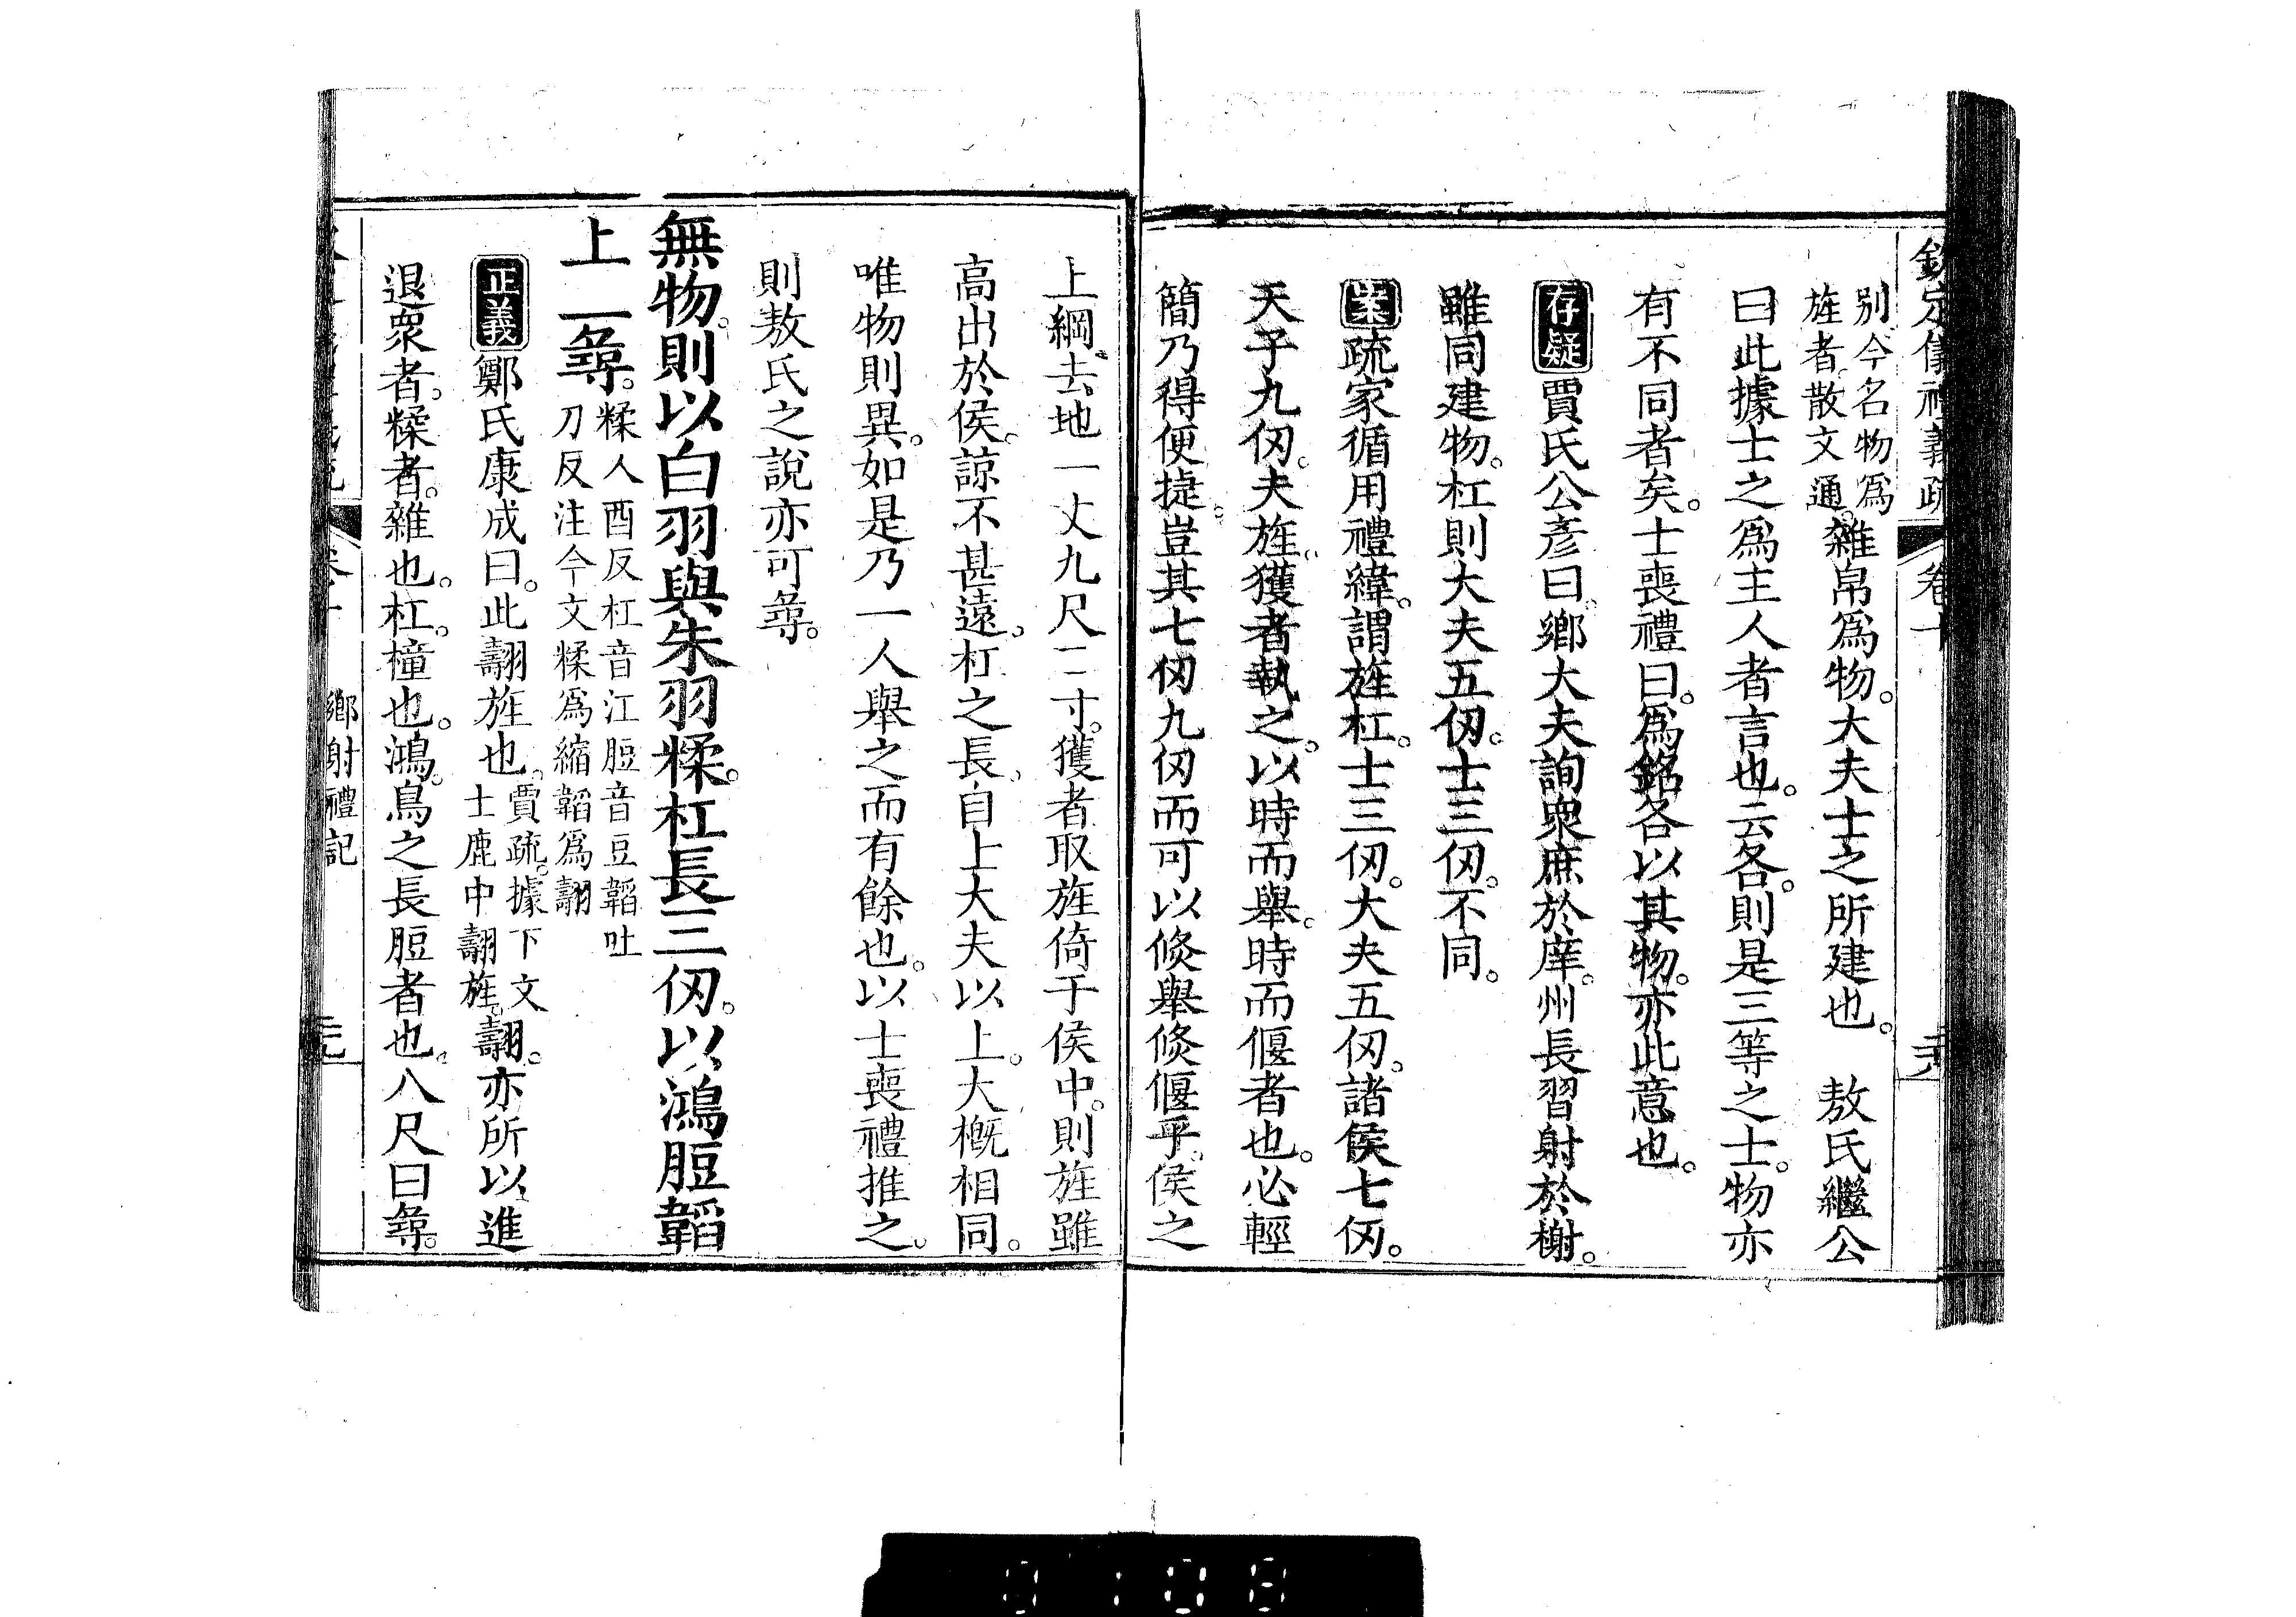 欽定儀禮義疏 卷十
别今名物爲
旌者散文通。
雜帛爲物。大夫士之所建也。 敖氏繼公
曰此據士之爲主人者言也。云各。則是三等之士。物亦
有不同者矣。士喪禮曰。爲銘各以其物。亦此意也。
存疑賈氏公彦曰。鄉大夫詢衆庶於庠。州長習射於榭。
雖同建物。杠則大夫五仞。士三仞。不同。
案疏家循用禮緯。謂旌杠。士三仞。大夫五仞。諸侯七仞。
天子九仞。夫旌。獲者執之。以時而舉。時而偃者也。必輕
簡乃得便捷。豈其七仞九仞而可以倏舉倏偃乎。侯之
上綱去地一丈九尺二寸。獲者取旌倚于侯中。則旌雖
高出於侯。諒不甚遠。杠之長。自上大夫以上。大槪相同。
唯物則異。如是乃一人舉之而有餘也。以士喪禮推之。
則敖氏之說亦可尋。
無物。則以白羽與朱羽糅。杠長三仞。以鴻脰韜
上二尋。
糅人酉反杠音江脰音豆韜吐
刀反注今文糅爲縮韜爲翿
正義鄭氏康成曰。此翿旌也。
賈疏。據下文
士鹿中翿旌。
翿。亦所以進
退衆者。糅者。雜也。杠。橦也。鴻。鳥之長脰者也。八尺曰尋。
鄉射禮記